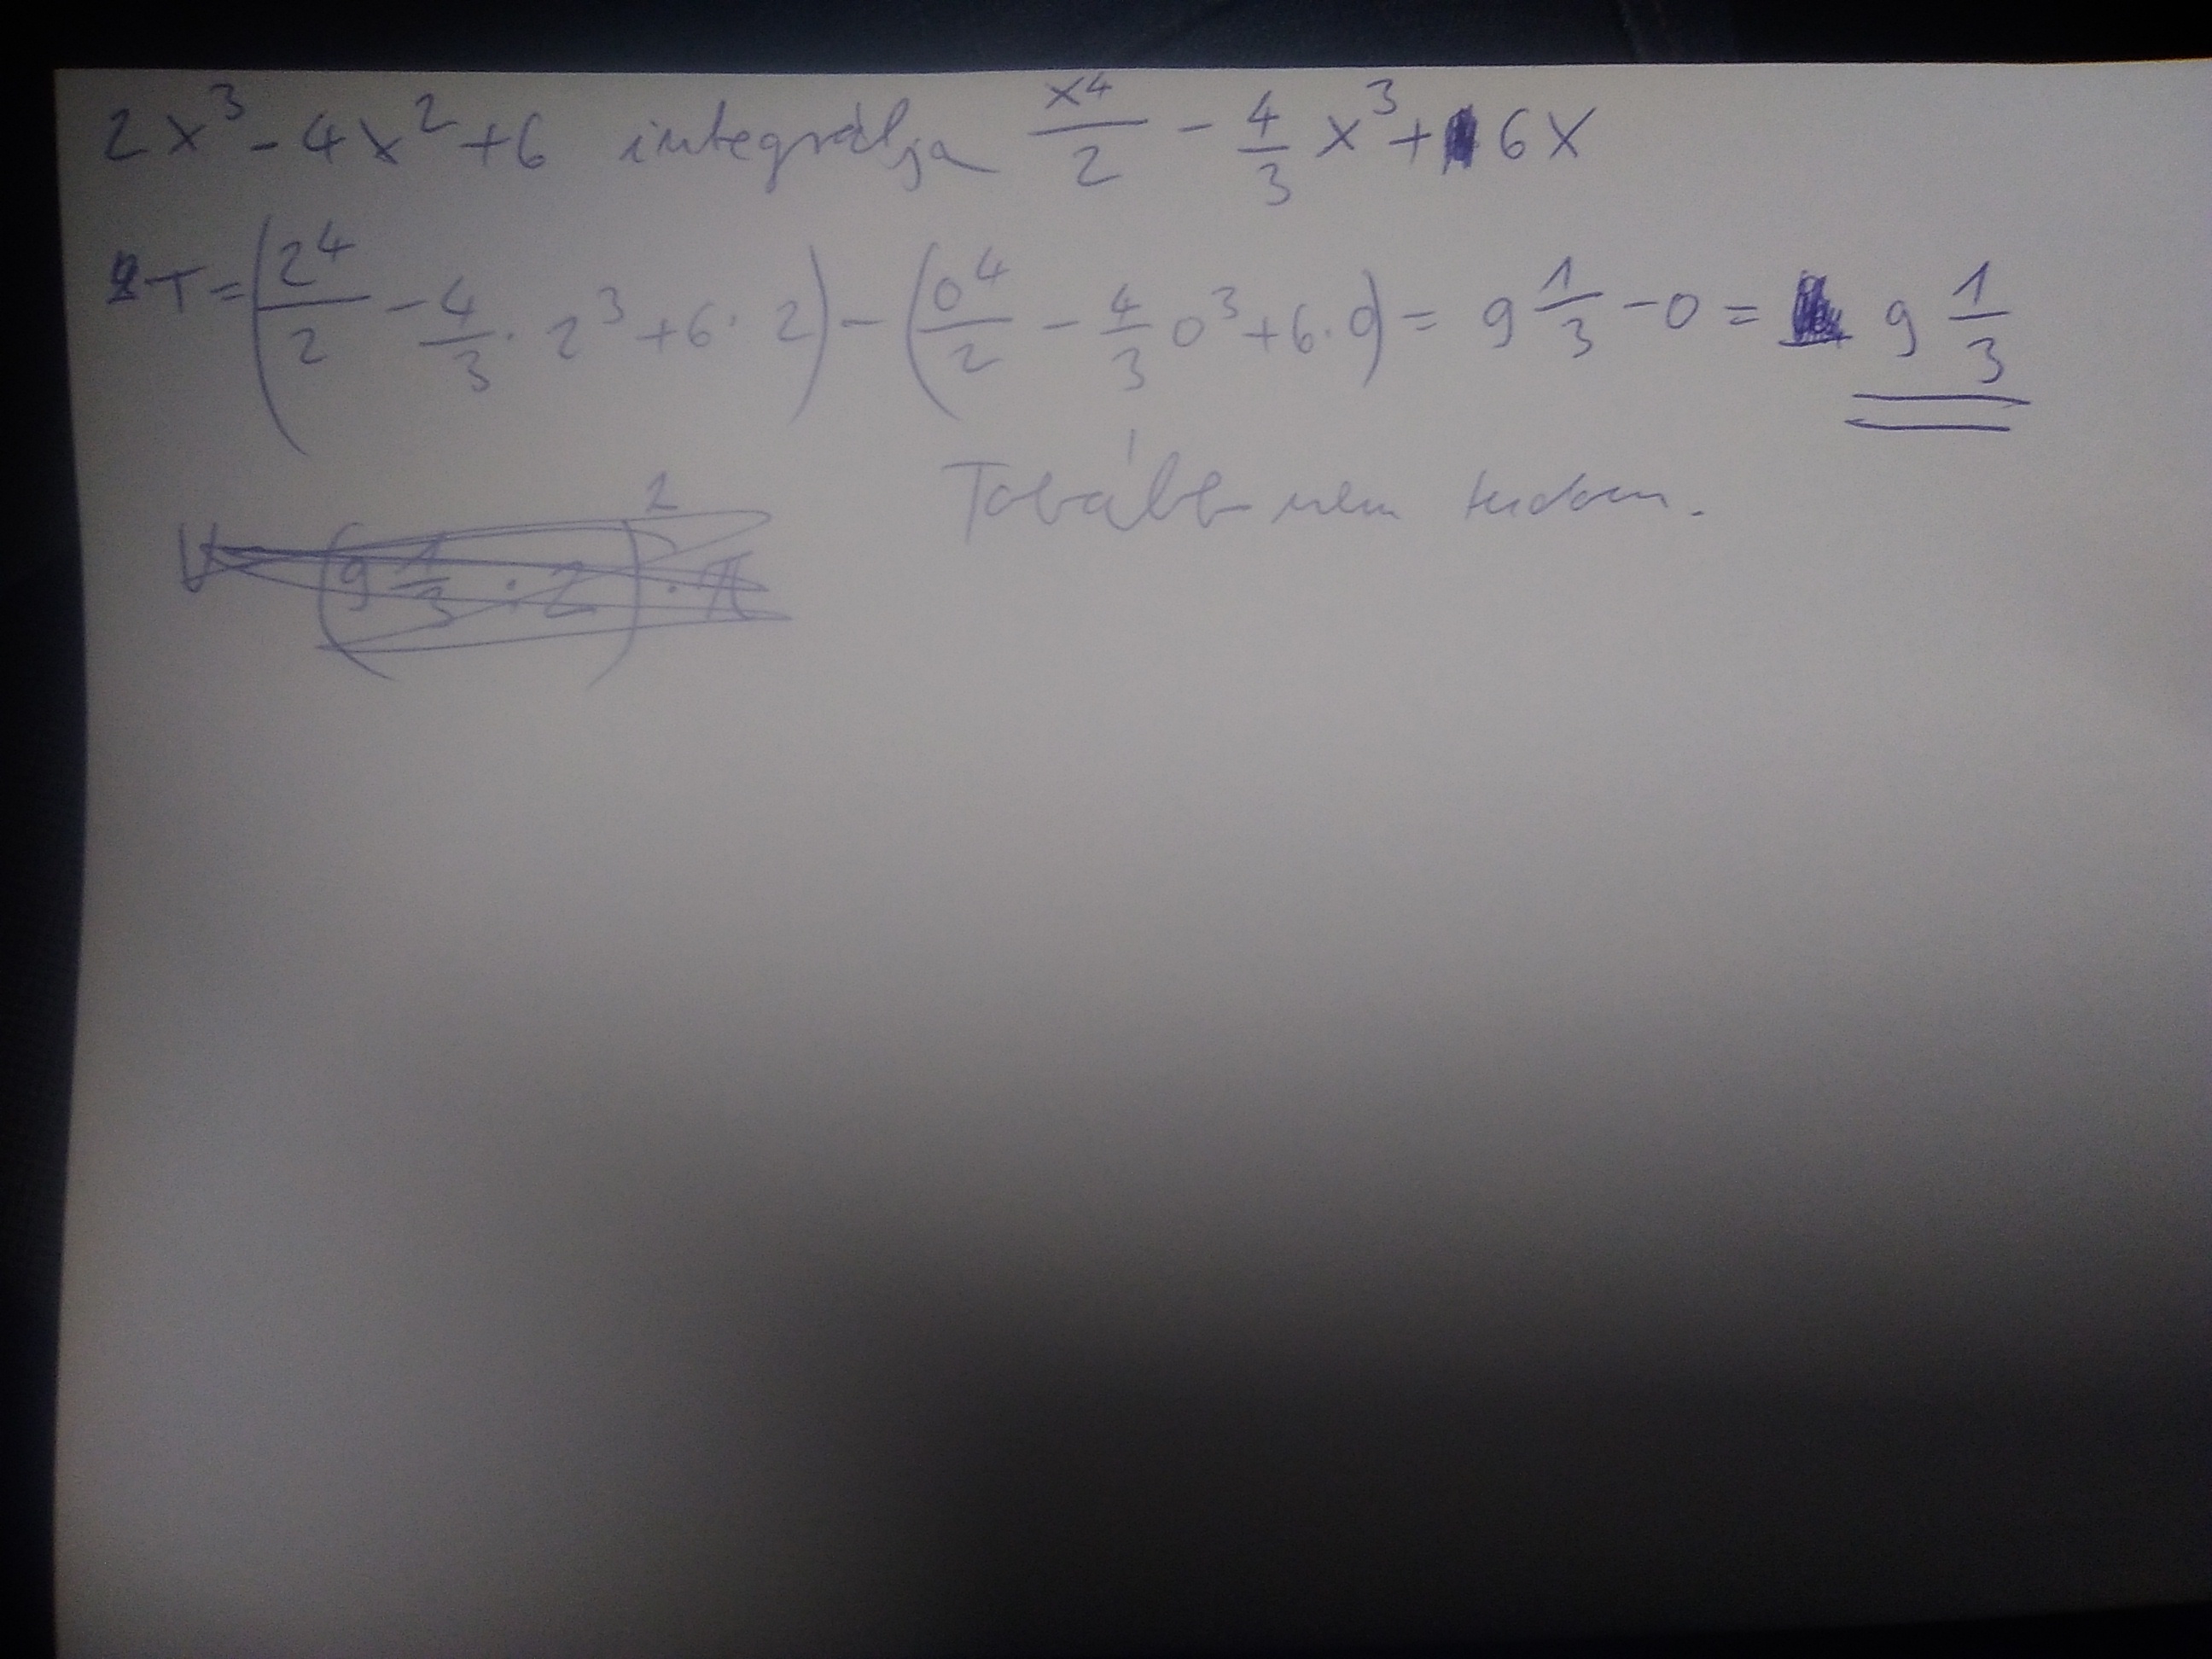 2x³ - 4x² + 6 integrálja x⁴/2 - 4/3 x³ + 6x
T = (2⁴/2 - 4/3 · 2³ + 6 · 2) - (0⁴/2 - 4/3 0³ + 6 · 0) = 9 1/3 - 0 = 9 1/3
V (9 1/3 · 2)² · π
Tovább nem tudom.